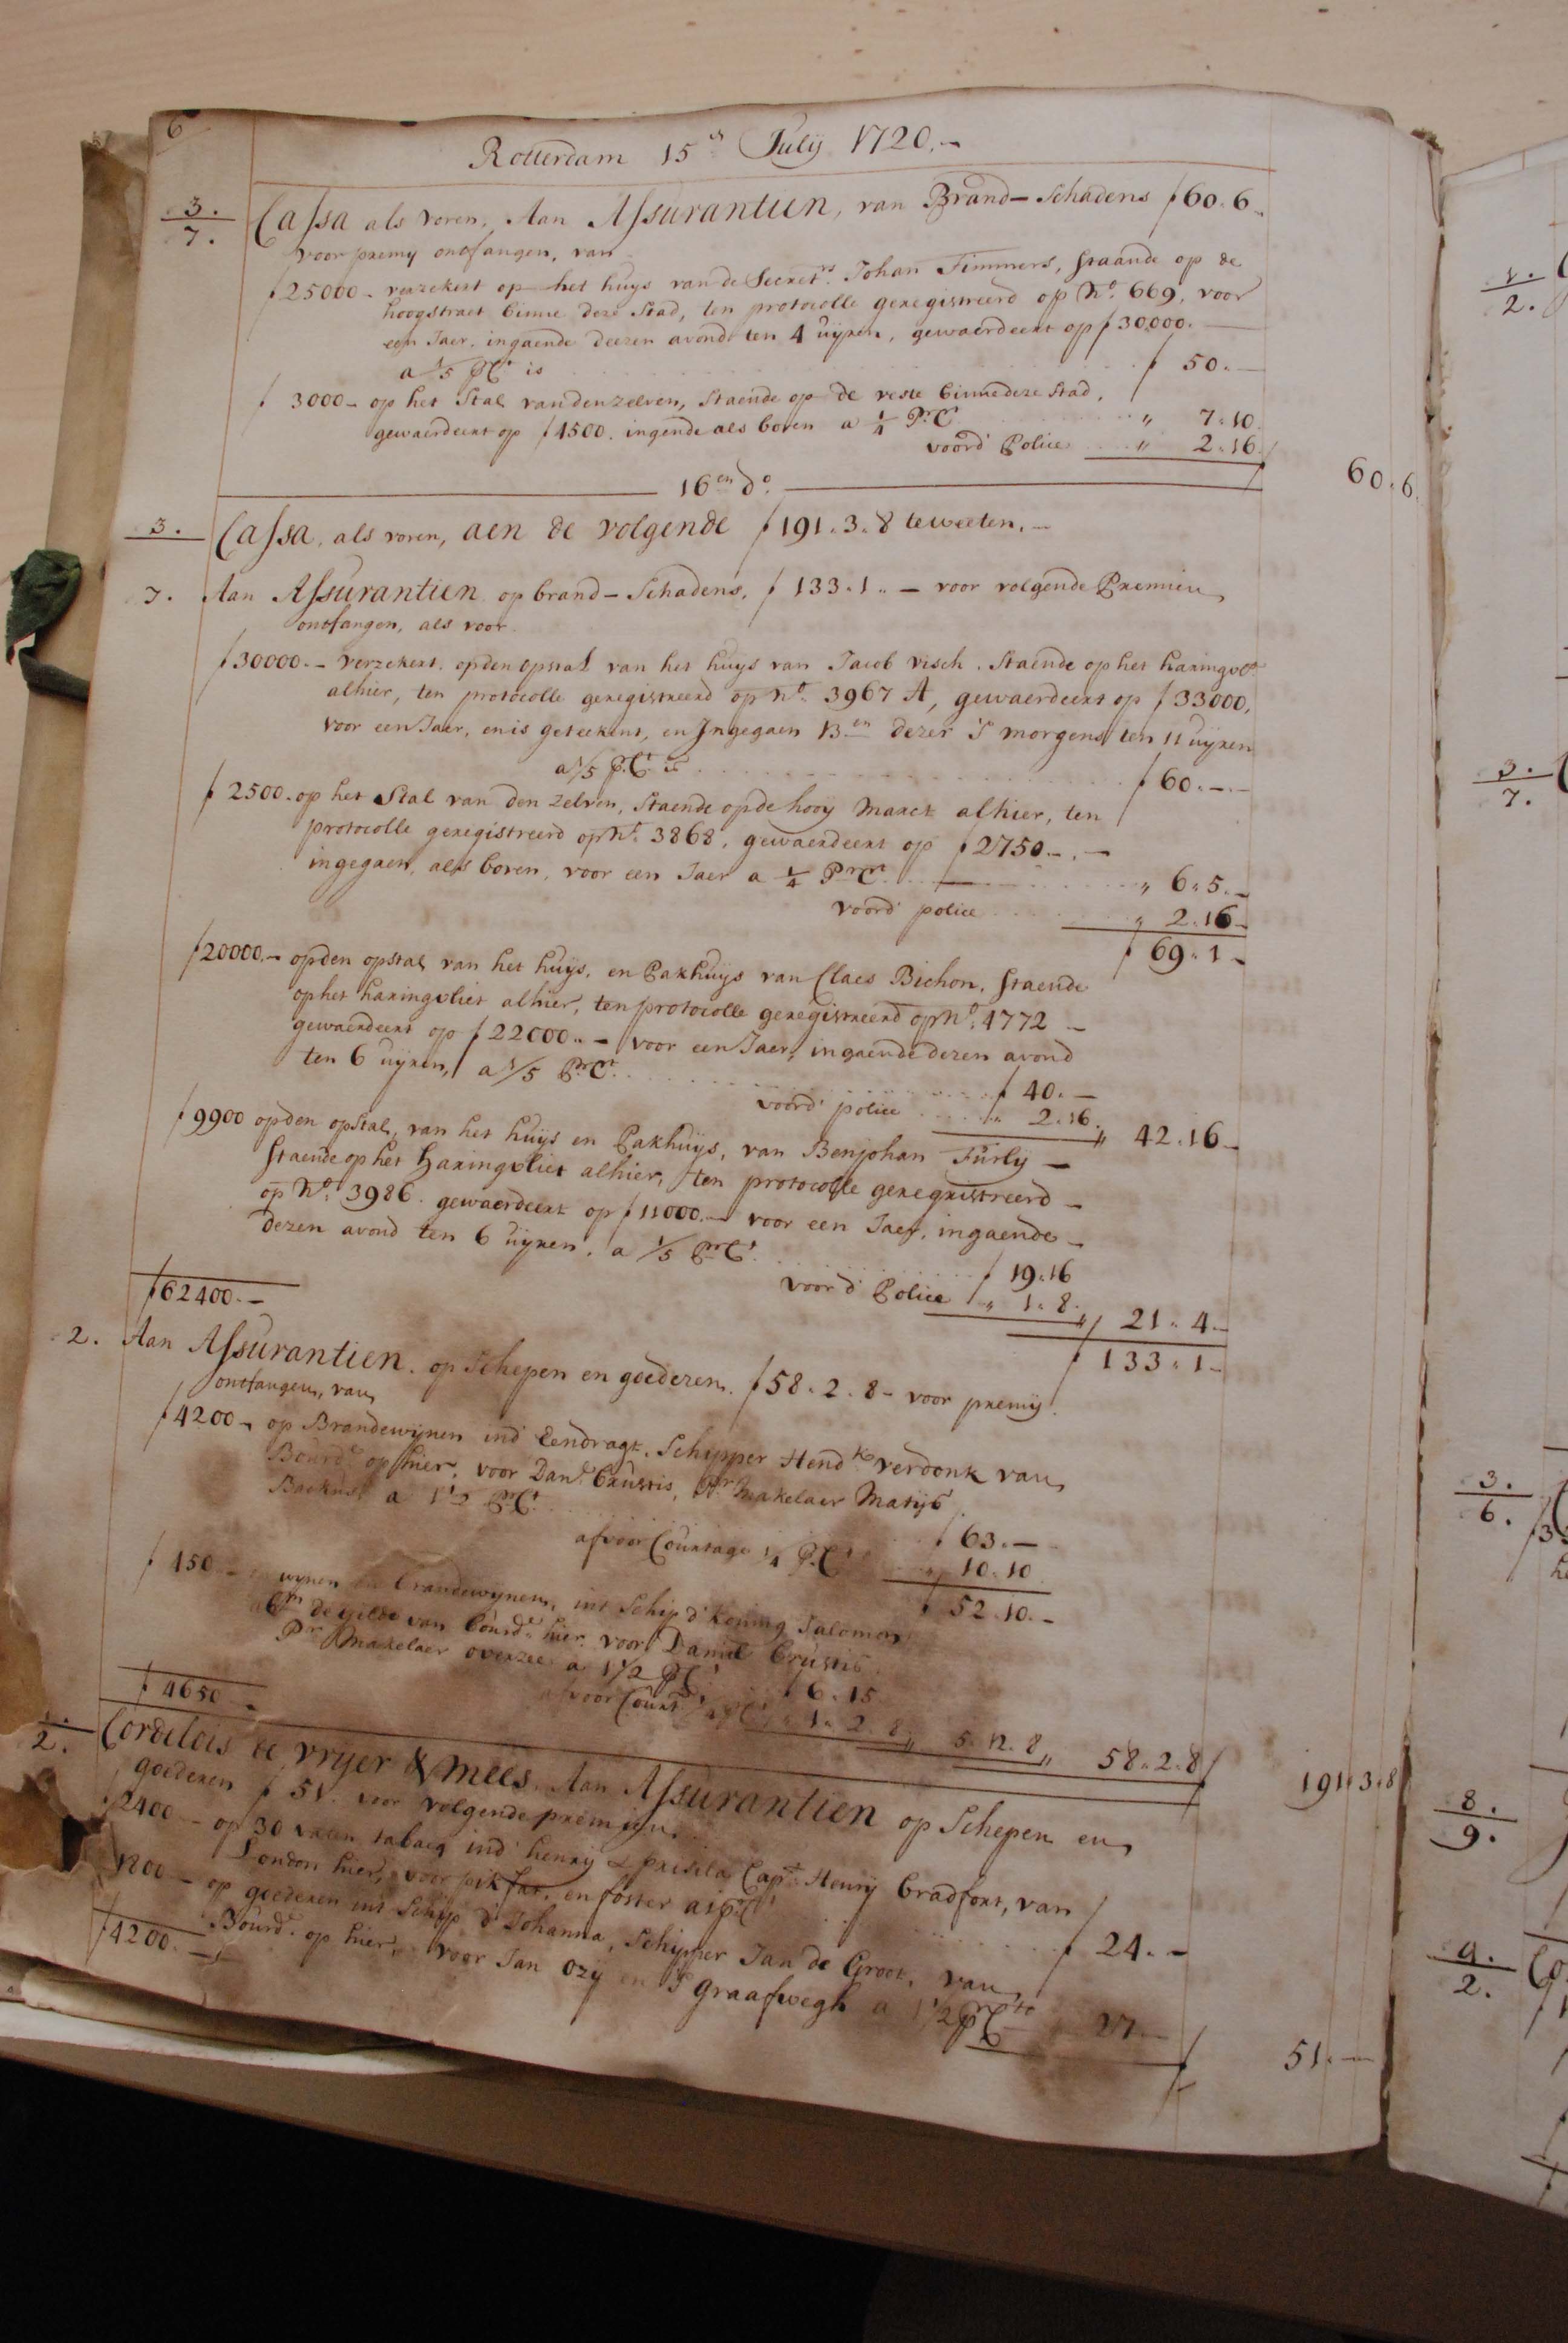 6
Rotterdam 15en Julij 1720.-
3. Cassa als voren, Aan Assurantien, van Brand-Schadens f 60.6.-
7. voor premy ontfangen, van
f 25000.- verzekert op het huys van de Secrets. Johan Timmers, staande op de
hoogstraet binne deze Stad, ten protocolle geregistreerd op No. 669, voor
een Jaer. ingaende deezen avond ten 4 uijren, gewaerdeert op f 30000.-
a 1/5 P.Ct. is f 50.-
f 3000.- op het Stal van den zelven, Staende op de veste binne deze Stad,
gewaerdeert op f 4500. ingende als boven a 1/4 Pr.Ct. " 7.10.
voord Police " 2.16.
60.6.
16en do.
3. Cassa. als voren, aen de volgende f 191.3.8 teweeten.-
7. Aan Assurantien op brand-Schadens, f 133.1.- voor volgende Premien
ontfangen, als voor.
f 30000.- verzekert. op den opstal van het huys van Jacob visch. Staende op het haringvlt.
alhier, ten protocolle geregistreerd op No. 3967 A, gewaerdeert op f 33000,
voor een Jaer, en is geteekent, en Ingegaen 13en dezer S morgens ten 11 uijren
a 1/5 P.Ct. is f 60.-.-
f 2500. op het Stal van den zelven, Staende op de hooy Marct alhier, ten
protocolle geregistreerd op No. 3868, gewaerdeert op f 2750.-.-
ingegaen, als boven, voor een Jaer a 1/4 Pr.Ct. " 6.5.-
voord police " 2.16.-
f 69.1.-
f 20000.- op den opstal van het huijs, en Pakhuijs van Claes Bichon, staende
op het haringvliet alhier, ten protocolle geregistreerd op No. 4772 -
gewaerdeert op f 22000.- voor een Jaer, ingaende dezen avond
ten 6 uijren, a 1/5 Pr.Ct. f 40.-
voord police " 2.16. " 42.16.-
f 9900 op den opstal, van het huijs en Pakhuijs, van Benjohan Furly -
Staende op het haringvliet alhier, ten protocolle geregristreerd -
op No. 3986. gewaerdeert op f 11000.- voor een Jaer, ingaende -
dezen avond ten 6 uijren, a 1/5 Pr.Ct. f 19.16
voord Police " 1.8. " 21.4.-
f 62400.- f 133.1.-
2. Aan Assurantien. op Schepen en goederen. f 58.2.8 - voor premij.
ontfangen, van
f 4200.- op Brandewijnen ind Eendragt. Schipper Hendk verdonk van
Bourdx. op hier, voor Danl. Crustis, Pr. Makelaer Matijs
Backus, a 1 1/2 Pr.Ct. f 63.-
af voor Courtage 1/4 P.Ct. " 10.10
f 52.10.-
f 450.- wijnen brandewijnen, int Schip d' koning Salomon
de Gilde van Bourdx. hier. voor Daniel Crustis.
Pr Makelaer overzee a 1 1/2 P.Ct. f 6.15
af voor Court. 1/4 P.Ct. " 1.2.8 " 5.12.8 " 58.2.8
f 4650.-
191.3.8
2. Cordelois de vrijer & Mees. Aan Assurantien op Schepen en
goederen f 51. voor volgende premien.
f 2400.- op 30 vaten tabacq ind henrij & prisila Capt. Henrij bradfort, van
London hier, voor en foster a 1 p.Ct. f 24.-
1800.- op goederen int Schip d' Johanna, Schipper Jan de Groot, van
Bourdx. op hier, voor Jan Ozy en S Graafwegh a 1 1/2 p.Cto " 27.-
f 4200.-
51.-